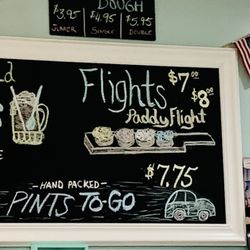 DOUGH
$3.95 $4.95 $5.95
JUNIOR SINGLE DOUBLE
Flights $7.00
$8.00
Paddy Flight
$7.75
-HAND PACKED-
PINTS TO-GO